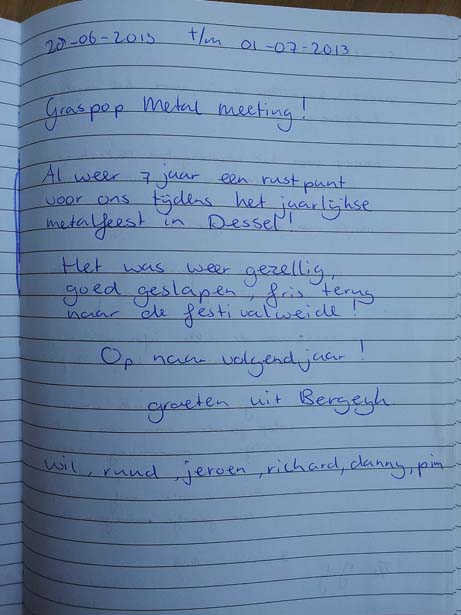 28-06-2013 t/m 01-07-2013
Graspop Metal meeting!
Al weer 7 jaar een rustpunt
voor ons tijdens het jaarlijkse
metalfeest in Dessel!
Het was weer gezellig,
goed geslapen, fris terug
naar de festivalweide!
Op naar volgend jaar!
groeten uit Bergeyk
wil, ruud, jeroen, richard, danny, pim